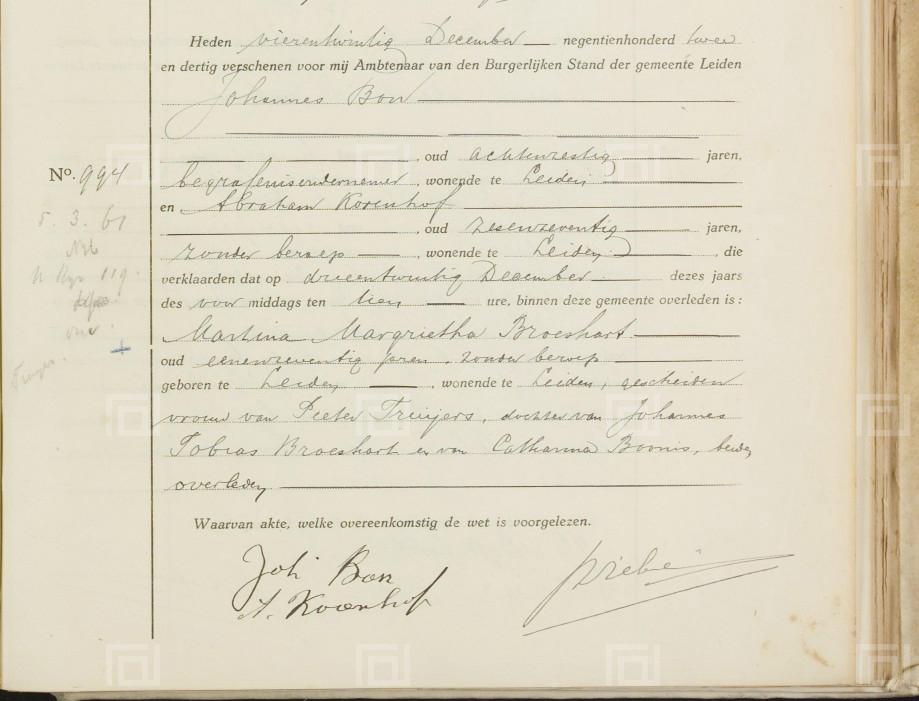 Heden vierentwintig December negentienhonderd twee
en dertig verschenen voor mij Ambtenaar van den Burgerlijken Stand der gemeente Leiden
Johannes Bon
, oud achtenzestig jaren,
No. 994
begrafenisondernemer, wonende te Leiden
en Abraham Koxenhof
, oud zesenzeventig jaren,
zonder beroep, wonende te Leiden, die
verklaarden dat op drieentwintig December dezes jaars
des voor middags ten tien ure, binnen deze gemeente overleden is:
Martina Margrietha Broeshart
oud eenenzeventig jaren, zonder beroep
geboren te Leiden, wonende te Leiden, gescheiden
vrouw van Pieter Treijers, dochter van Johannes
Tobias Broeshart en van Catharina Boonis, beiden
overleden
Waarvan akte, welke overeenkomstig de wet is voorgelezen.
Joh Bon
A. Koxenhof
5. 3. 61
119